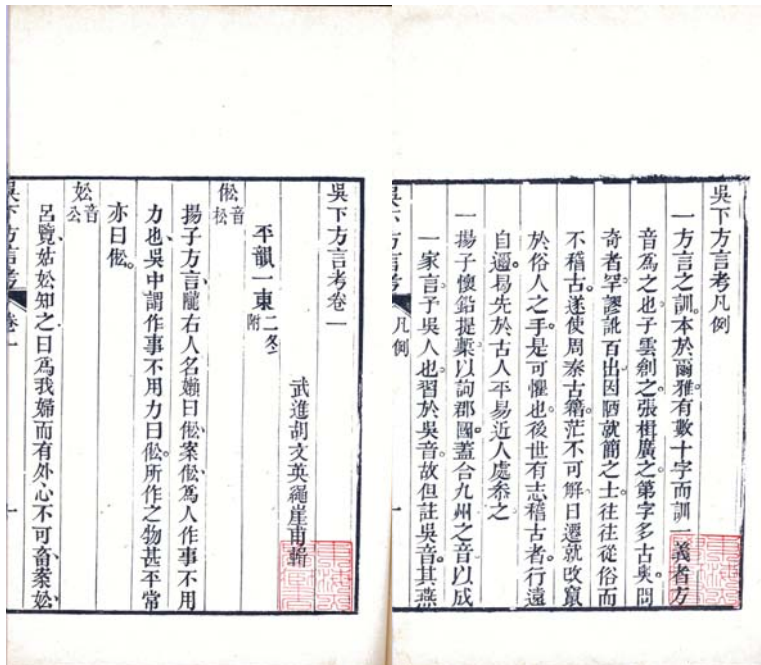 吳下方言考凡例
一方言之訓本於爾雅有數十字而訓一義者方
音為之也子雲創之張楫廣之第字多古奧問
奇者罕謬訛百出因陋就簡之士往往從俗而
不稽古遂使周秦古籍茫不可解日遷就改竄
於俗人之手是可懼也後世有志稽古者行遠
自邇易先於古人平易近人處叅之
一揚子懷鉛提槧以詢郡國蓋合九州之音以成
一家言予吳人也習於吳音故但註吳音其燕
吳下方言考
凡例
一
吳下方言考卷一
武進胡文英繩崖甫輯
平韻一東二冬附
倯音松
揚子方言隴右人名嬾曰倯案倯為人作事不用
力也吳中謂作事不用力曰倯所作之物甚平常
亦曰倯
妐音公
呂覽姑妐知之曰為我婦而有外心不可畜案妐
吳下方言考
卷一
一